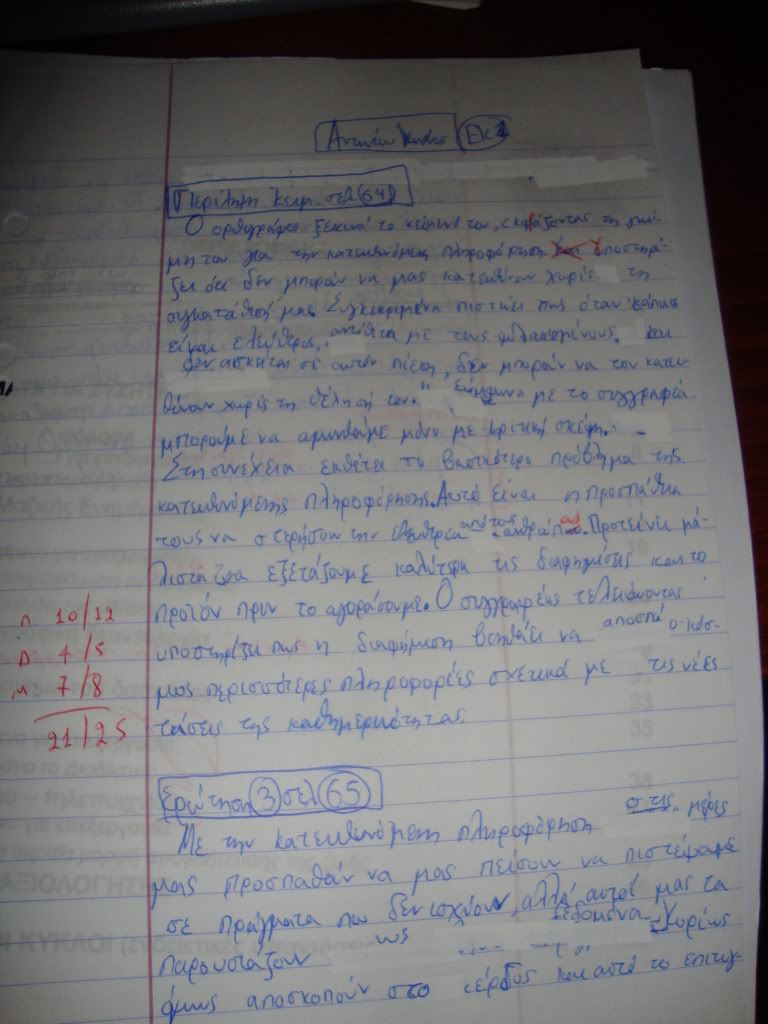 Εκ4
Περίληψη κειμ. σελ (64)
Ο αρθογράφος ξεκινά το κείμενό του, εκφράζοντας τη γνώ-
μη του για την κατευθυνόμενη πληροφόρηση. Υποστηρί-
ζει ότι δεν μπορούν να μας κατευθύνουν χωρίς τη
συγκατάθεσή μας. Συγκεκριμένα πιστεύει πως όταν κάποιος
είναι ελεύθερος, αντίθετα με τους φυλακισμένους, και
δεν ασκείται σε αυτόν πίεση, δεν μπορούν να τον κατευ-
θύνουν χωρίς τη θέλησή του. Σύμφωνα με το συγγραφέα
μπορούμε να αμυνθούμε μόνο με κριτική σκέψη.
Στη συνέχεια εκθέτει το βασικότερο πρόβλημα της
κατευθυνόμενης πληροφόρησης. Αυτό είναι η προσπάθεια
τους να στερήσουν την ελευθερία από τους ανθρώπους. Προτείνει μά-
λιστα να εξετάζουμε καλύτερα τις διαφημίσεις και το
προϊόν πριν το αγοράσουμε. Ο συγγραφέας τελειώνοντας
υποστηρίζει πως η διαφήμιση βοηθάει να αποσπά ο κόσ-
μος περισσότερες πληροφορίες σχετικά με τις νέες
τάσεις της καθημερινότητας.
π: 10/12
Δ: 4/5
μ: 7/8
21/25
Ερώτηση (3) σελ (65)
Με την κατευθυνόμενη πληροφόρηση στις μέρες
μας προσπαθούν να μας πείσουν να πιστέψουμε
σε πράγματα που δεν ισχύουν, αλλά αυτοί μας τα
παρουσιάζουν ως δεδομένα. Κυρίως
όμως αποσκοπούν στο κέρδος και αυτό το επιτυγ-
33
35
38